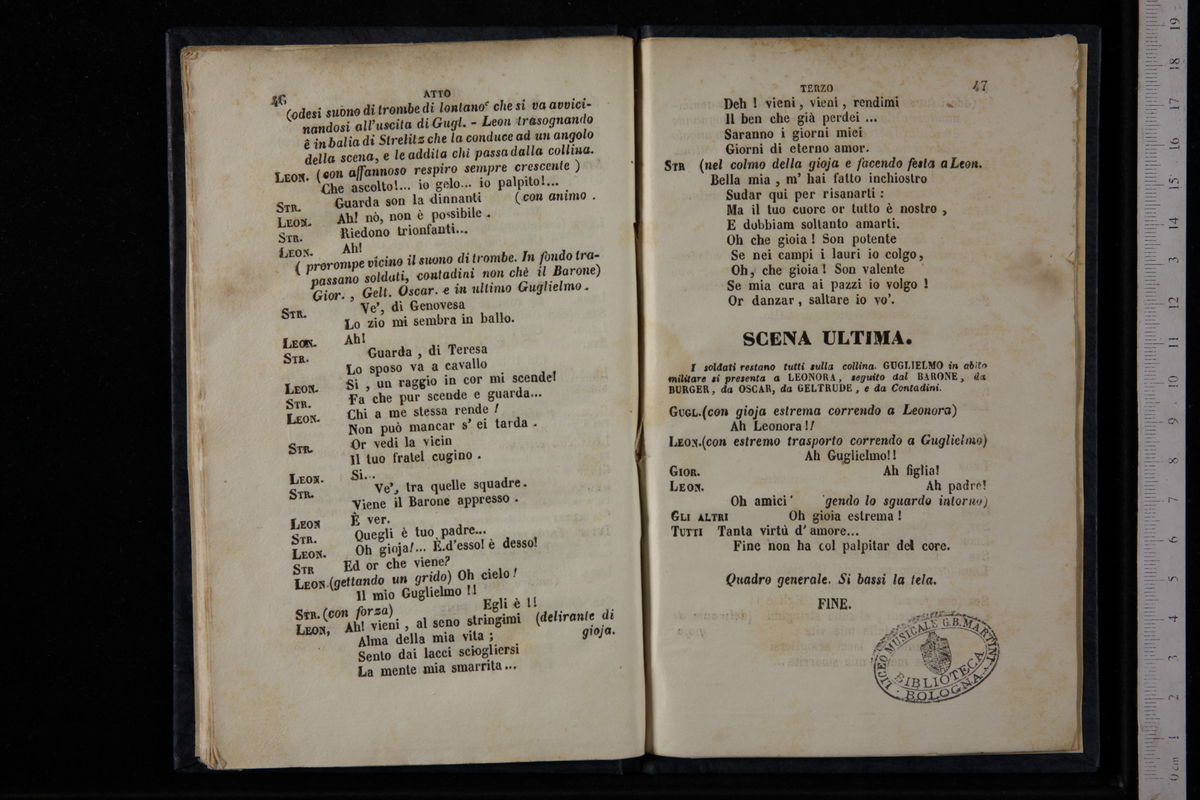 46
ATTO
(odesi suòno di trombe di lontano che si va avvici-
nandosi all'uscita di Gugl. - Leon trasognando
è in balia di Strelitz che la conduce ad un angolo
della scena, e le addita chi passa dalla collina.
LEON. (con affannoso respiro sempre crescente )
Che ascolto!... io gelo... io palpito!...
STR. Guarda son la dinnanti (con animo .
LEON. Ah! nò, non è possibile .
STR. Riedono trionfanti...
LEON. Ah!
( prorompe vicino il suono di trombe. In fondo tra-
passano soldati, contadini non chè il Barone)
Gior. , Gelt. Oscar. e in ultimo Guglielmo.
STR. Ve', di Genovesa
Lo zio mi sembra in ballo.
LEON. Ah!
STR. Guarda , di Teresa
Lo sposo va a cavallo
LEON. Si , un raggio in cor mi scende!
STR. Fa che pur scende e guarda...
LEON. Chi a me stessa rende !
Non può mancar s' ei tarda .
STR. Or vedi la vicin
Il tuo fratel cugino .
LEON. Si..
STR. Ve', tra quelle squadre.
Viene il Barone appresso .
LEON È ver.
STR. Quegli è tuo padre...
LEON. Oh gioja!... È d'esso! è desso!
STR Ed or che viene?
LEON (gettando un grido) Oh cielo!
Il mio Guglielmo !!
STR. (con forza) Egli è !!
LEON, Ah! vieni , al seno stringimi (delirante di
Alma della mia vita ; gioja.
Sento dai lacci sciogliersi
La mente mia smarrita...
TERZO
47
Deh ! vieni, vieni , rendimi
Il ben che già perdei ...
Saranno i giorni miei
Giorni di eterno amor.
STR (nel colmo della gioja e facendo festa a Leon.
Bella mia , m' hai fatto inchiostro
Sudar qui per risanarti :
Ma il tuo cuore or tutto è nostro ,
E dobbiam soltanto amarti.
Oh che gioia ! Son potente
Se nei campi i lauri io colgo,
Oh, che gioia! Son valente
Se mia cura ai pazzi io volgo !
Or danzar, saltare io vo'.
SCENA ULTIMA.
I soldati restano tutti sulla collina. GUGLIELMO in abito
militare si presenta a LEONORA, seguito dal BARONE, da
BURGER, da OSCAR, da GELTRUDE, e da Contadini.
GUGL.(con gioja estrema correndo a Leonora)
Ah Leonora!!
LEON.(con estremo trasporto correndo a Guglielmo)
Ah Guglielmo!!
GIOR. Ah figlia!
LEON. Ah padre!
Oh amici gendo lo sguardo intorno)
GLI ALTRI Oh gioia estrema !
TUTTI Tanta virtù d' amore...
Fine non ha col palpitar del core.
Quadro generale. Si bassi la tela.
FINE.
LICEO MUSICALE G.B. MARTINI
BIBLIOTECA
BOLOGNA
0 cm 1 2 3 4 5 6 7 8 9 10 11 12 13 14 15 16 17 18 19